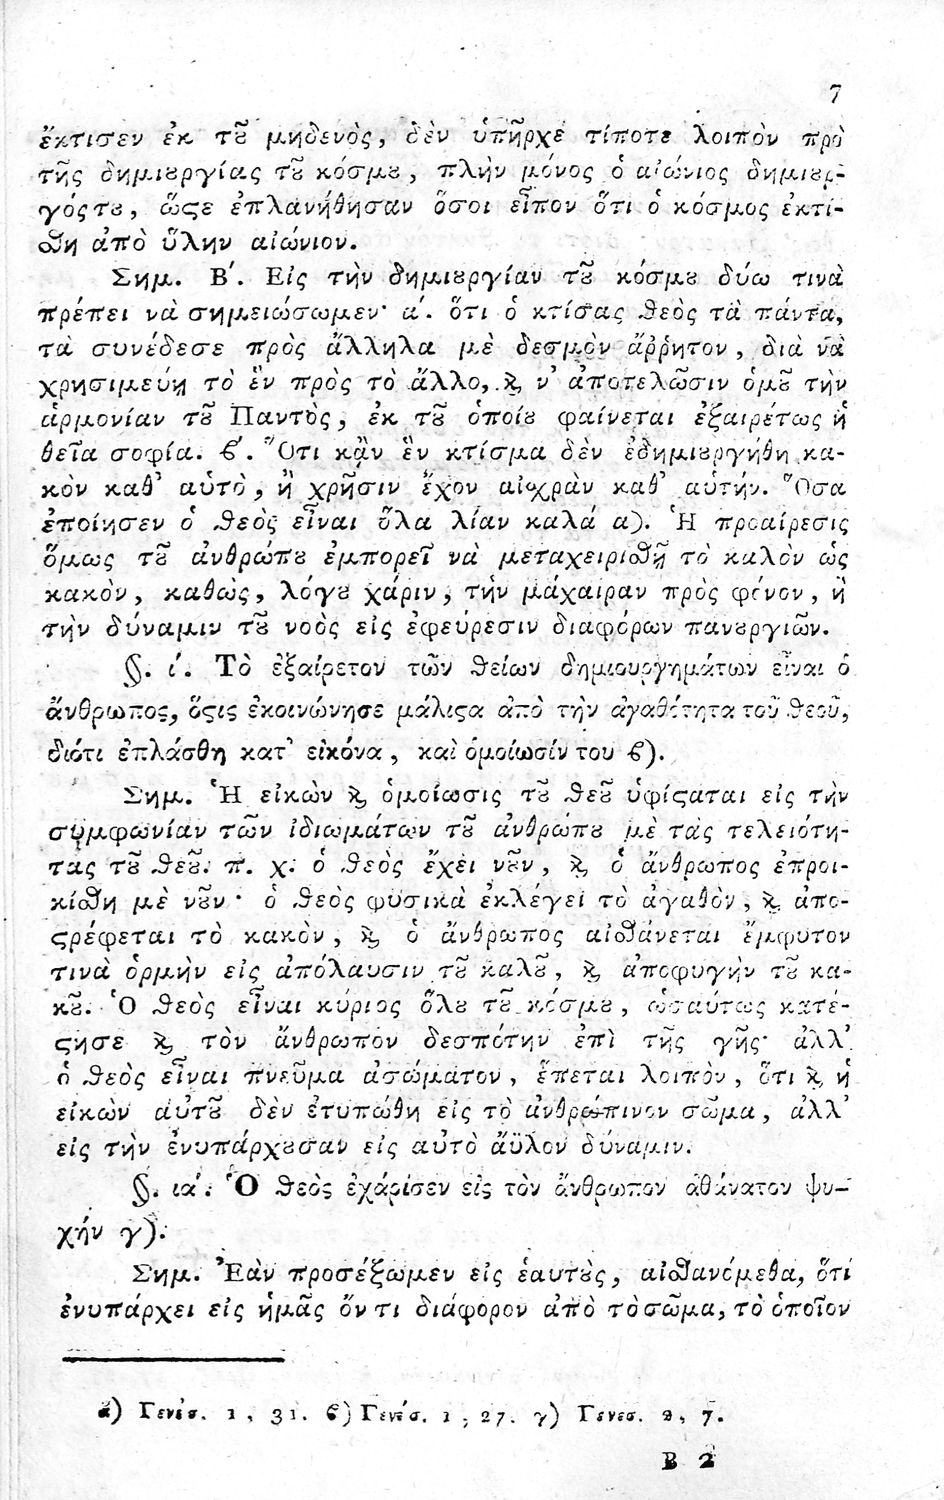 7
ἔκτισεν ἐκ τȣ͂ μηδενὸς, δὲν ὑπῆρχε τίποτε λοιπὸν πρὸ
τῆς δημιȣργίας τȣ͂ κόσμȣ, πλὴν μόνος ὁ αἰώνιος δημιȣρ-
γόςτȣ, ὥϛε ἐπλανήθησαν ὅσοι εἶπον ὅτι ὁ κόσμος ἐκτί-
σθη ἀπὸ ὕλην αἰώνιον.
Σημ. Β΄. Εἰς τὴν δημιȣργίαν τȣ͂ κόσμȣ δύω τινὰ
πρέπει νὰ σημειώσωμεν· ά. ὅτι ὁ κτίσας Θεὸς τὰ πάντα,
τὰ συνέδεσε πρὸς ἄλληλα μὲ δεσμὸν ἄῤῥητον, διὰ νὰ
χρησιμεύῃ τὸ ἓν πρὸς τὸ ἄλλο, ϗ ν᾽ ἀποτελῶσιν ὁμȣ͂ τὴν
ἁρμονίαν τȣ͂ Παντὸς, ἐκ τȣ͂ ὁποίȣ φαίνεται ἐξαιρέτως ἡ
θεῖα σοφία. ϐ΄. Ὅτι κᾂν ἓν κτίσμα δὲν ἐδημιȣργήθη κα-
κὸν καθ᾽ αὑτὸ, ἢ χρῆσιν ἔχον αἰσχρὰν καθ᾽ αὑτήν. Ὅσα
ἐποίησεν ὁ Θεὸς εἶναι ὅλα λίαν καλά α). Ἡ προαίρεσις
ὅμως τȣ͂ ἀνθρώπȣ ἐμπορεῖ νὰ μεταχειρισθῇ τὸ καλὸν ὡς
κακὸν, καθὼς, λόγȣ χάριν, τὴν μάχαιραν πρὸς φόνον, ἢ
τὴν δύναμιν τȣ͂ νοὸς εἰς ἐφεύρεσιν διαφόρων πανȣργιῶν.
§. ί. Τὸ ἐξαίρετον τῶν θείων δημιουργημάτων εἶναι ὁ
ἄνθρωπος, ὅϛις ἐκοινώνησε μάλιϛα ἀπὸ τὴν ἀγαθότητα τοῦ Θεοῦ,
διότι ἐπλάσθη κατ᾽ εἰκόνα, καὶ ὁμοίωσίν του ϐ).
Σημ. Ἡ εἰκὼν ϗ ὁμοίωσις τȣ͂ Θεȣ͂ ὑφίϛαται εἰς τὴν
συμφωνίαν τῶν ἰδιωμάτων τȣ͂ ἀνθρώπȣ μὲ τὰς τελειότη-
τας τȣ͂ Θεȣ͂. π. χ. ὁ Θεὸς ἔχει νȣ͂ν, ϗ ὁ ἄνθρωπος ἐπροι-
κίσθη μὲ νȣ͂ν· ὁ Θεὸς φυσικὰ ἐκλέγει τὸ ἀγαθὸν, ϗ ἀπο-
ϛρέφεται τὸ κακὸν, ϗ ὁ ἄνθρωπος αἰσθάνεται ἔμφυτον
τινὰ ὁρμὴν εἰς ἀπόλαυσιν τȣ͂ καλȣ͂, ϗ ἀποφυγὴν τȣ͂ κα-
κȣ͂. Ὁ Θεὸς εἶναι κύριος ὅλȣ τȣ͂ κόσμȣ, ὡσαύτως κατέ-
ϛησε ϗ τὸν ἄνθρωπον δεσπότην ἐπὶ τῆς γῆς· ἀλλ᾽
ὁ Θεὸς εἶναι πνεῦμα ἀσώματον, ἕπεται λοιπὸν, ὅτι ϗ ἡ
εἰκὼν αὐτȣ͂ δὲν ἐτυπώθη εἰς τὸ ἀνθρώπινον σῶμα, ἀλλ᾽
εἰς τὴν ἐνυπάρχȣσαν εἰς αὐτὸ ἄϋλον δύναμιν.
§. ια΄. Ὁ Θεὸς ἐχάρισεν εἰς τὸν ἄνθρωπον ἀθάνατον ψυ-
χήν γ).
Σημ. Ἐὰν προσέξωμεν εἰς ἑαυτȣ̀ς, αἰσθανόμεθα, ὅτί
ἐνυπάρχει εἰς ἡμᾶς ὄν τι διάφορον ἀπὸ τὸσῶμα, τὸ ὁποῖον
α) Γενέσ. 1, 31. ϐ) Γενέσ. 1, 27. γ) Γενεσ. 2, 7.
Β 2